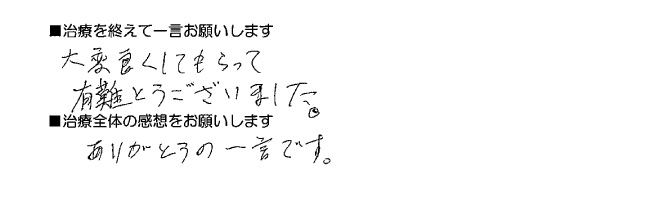 ■治療を終えて一言お願いします
大変良くしてもらって
有難とうございました。
■治療全体の感想をお願いします
ありがとうの一言です。